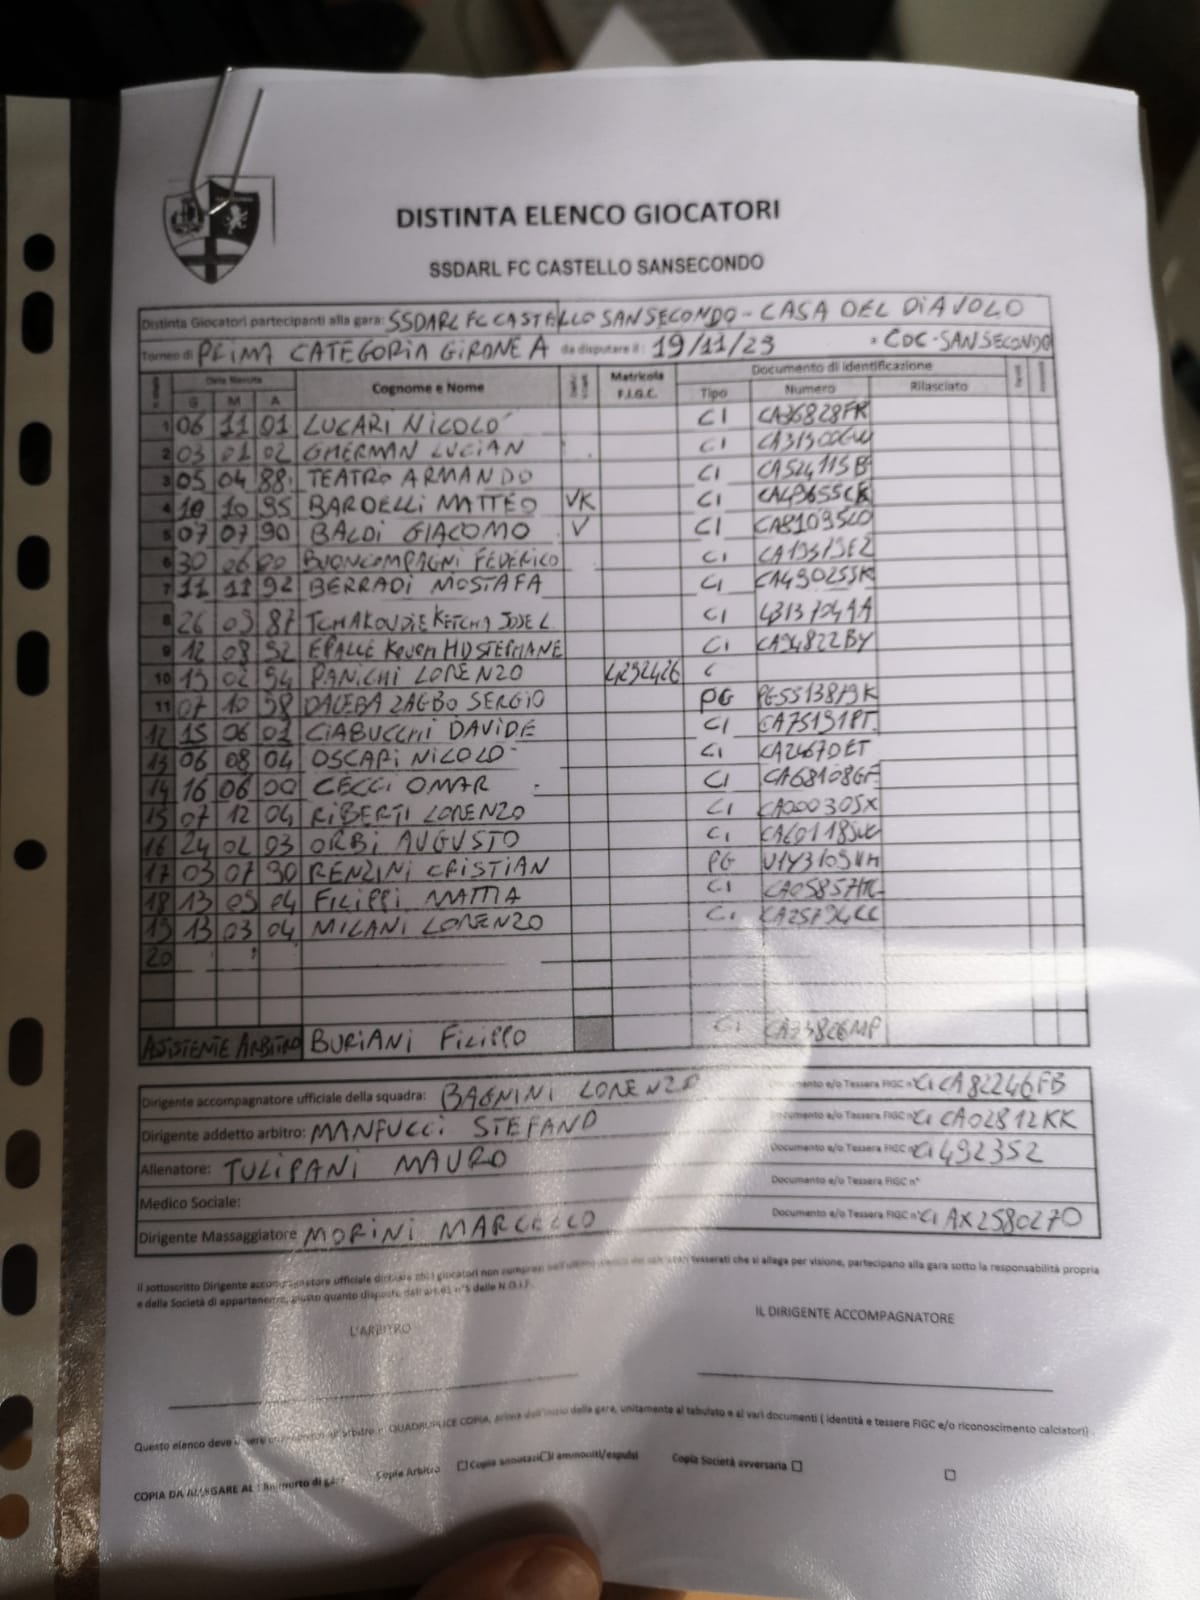 DISTINTA ELENCO GIOCATORI
SSDARL FC CASTELLO SANSECONDO
Distinta Giocatori partecipanti alla gara: SSDARL FC CASTELLO SANSECONDO - CASA DEL DIAVOLO
Torneo di PRIMA CATEGORIA GIRONE A da disputare il: 19/11/23 COC-SANSECONDO
Cognome e Nome Matricola F.I.G.C. Documento di identificazione
G M A Tipo Numero Rilasciato
1 06 11 01 LUCARI NICOLO' CI CA36828FR
2 03 01 02 GHERMAN LUCIAN CI
3 05 04 88 TEATRO ARMANDO CI
4 10 10 95 BARDELLI MATTEO VK CI
5 07 07 90 BALDI GIACOMO V CI
6 30 06 BUONCOMPAGNI FEDERICO CI
7 11 11 92 BERRADI MOSTAFA CI CA49025SK
8 26 09 87 CI
9 12 08 92 CI CA94822BY
10 19 02 94 PANICHI LORENZO 4292426 C
11 07 10 98 DALEBA ZAGBO SERGIO PG
12 15 06 01 CIABUCCHI DAVIDE CI CA75191PT
13 06 08 04 OSCARI NICOLO' CI CA24670ET
14 16 06 00 CECCI OMAR CI CA68108GF
15 07 12 04 RIBERTI LORENZO CI CA00030SX
16 24 02 03 ORBI AUGUSTO CI
17 03 07 90 RENZINI CRISTIAN PG
18 13 09 04 FILIPPI MATTIA CI
19 13 03 04 MILANI LORENZO CI CA25794CC
20
ASISTENTE ARBITRO BURIANI FILIPPO CI
Dirigente accompagnatore ufficiale della squadra: BAGNINI LORENZO Documento e/o Tessera FIGC n° CI CA82246FB
Dirigente addetto arbitro: MANFUCCI STEFANO Documento e/o Tessera FIGC n° CI CA02812KK
Allenatore: TULIPANI MAURO Documento e/o Tessera FIGC n° CI 492352
Medico Sociale: Documento e/o Tessera FIGC n°
Dirigente Massaggiatore MORINI MARCELLO Documento e/o Tessera FIGC n° CI AX2580270
Il sottoscritto Dirigente accompagnatore ufficiale dichiara che i giocatori non compresi tesserati che si allega per visione, partecipano alla gara sotto la responsabilità propria
e della Società di appartenenza, giusto quanto disposto dall'art.61 n°5 delle N.O.I.F.
L'ARBITRO IL DIRIGENTE ACCOMPAGNATORE
Questo elenco deve essere all'arbitro in QUADRUPLICE COPIA, prima dell'inizio della gara, unitamente al tabulato e ai vari documenti ( identità e tessere FIGC e/o riconoscimento calciatori) .
COPIA DA ALLEGARE AL : Rapporto di gara Copia Arbitro Copia annotazioni ammoniti/espulsi Copia Società avversaria